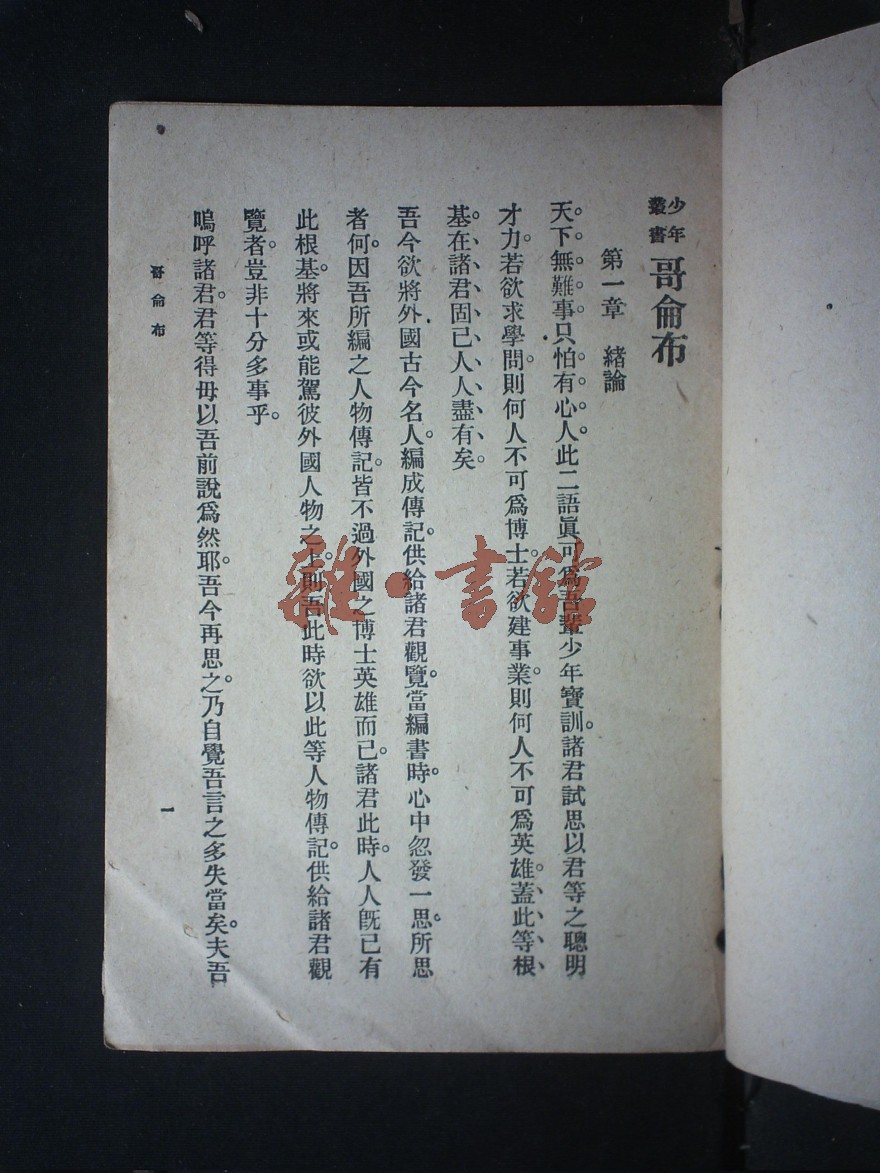 少年
叢書
哥侖布
第一章　緖論
天下無難事。只怕有心人。此二語眞可爲吾輩少年寶訓。諸君試思以君等之聰明
才力。若欲求學問。則何人不可爲博士。若欲建事業。則何人不可爲英雄。蓋此等根
基。在諸君固已人人盡有矣。
吾今欲將外國古今名人。編成傳記。供給諸君觀覽。當編書時。心中忽發一思。所思
者何。因吾所編之人物傳記。皆不過外國之博士英雄而已。諸君此時。人人旣已有
此根基。將來或能駕彼外國人物之上。則吾此時欲以此等人物傳記。供給諸君觀
覽者。豈非十分多事乎。
嗚呼諸君。君等得毋以吾前說爲然耶。吾今再思之。乃自覺吾言之多失當矣。夫吾
哥侖布
一
雜·書館